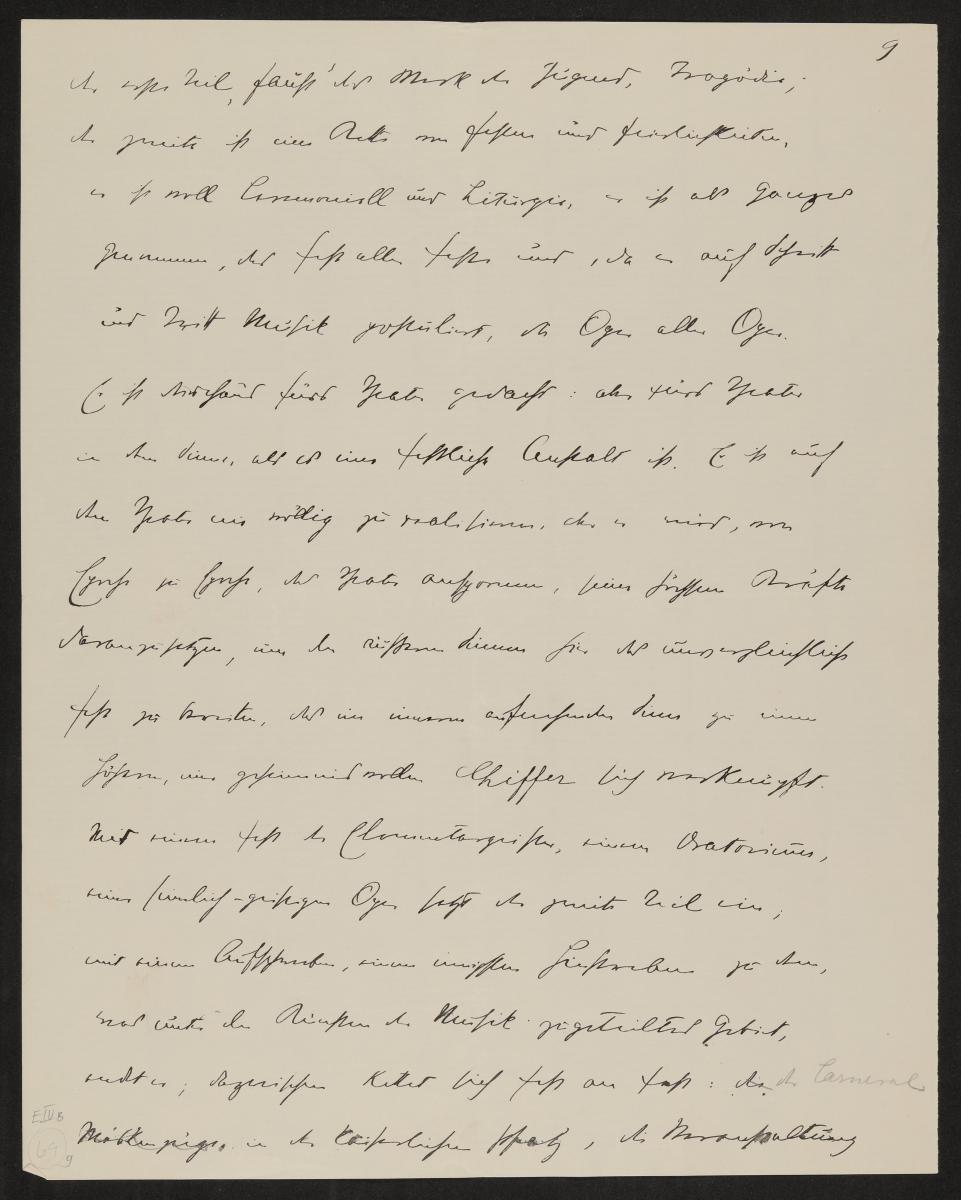 9
der erste Teil, Faust' das Werk der Jugend, Tragödie;
der zweite ist eine Kette von Festen und Feierlichkeiten,
er ist voll Ceremoniell und Liturgie, er ist als Ganzes
genommen, das Fest aller Feste und, da er auf Schritt
und Tritt Musik postuliert, die Oper aller Opern.
Er ist durchaus fürs Theater gedacht: aber fürs Theater
in dem Sinne, als es eine festliche Anstalt ist. Er ist auf
dem Theater nie völlig zu realisieren, aber er wird, von
Epoche zu Epoche, das Theater anspornen, seine höchsten Kräfte
daranzusetzen, um den äusseren Sinnen hier das unvergleichliche
Fest zu bereiten, das im inneren aufnehmenden Sinne zu einer
höheren, einer geheimnisvollen Chiffer sich verknüpft.
Mit einem Fest der Elementargeister, einem Oratorium,
einer sinnlich-geistigen Oper setzt der zweite Teil ein;
mit einem Aufschweben, einem innigsten Hinstreben zu dem,
was unter den Künsten der Musik zugeteiltes Gebiet,
endet er; dazwischen kettet sich Fest an Fest: der Carneval
Maskenzüge in der kaiserlichen Pfalz, die Veranstaltung
E IV B
69
9